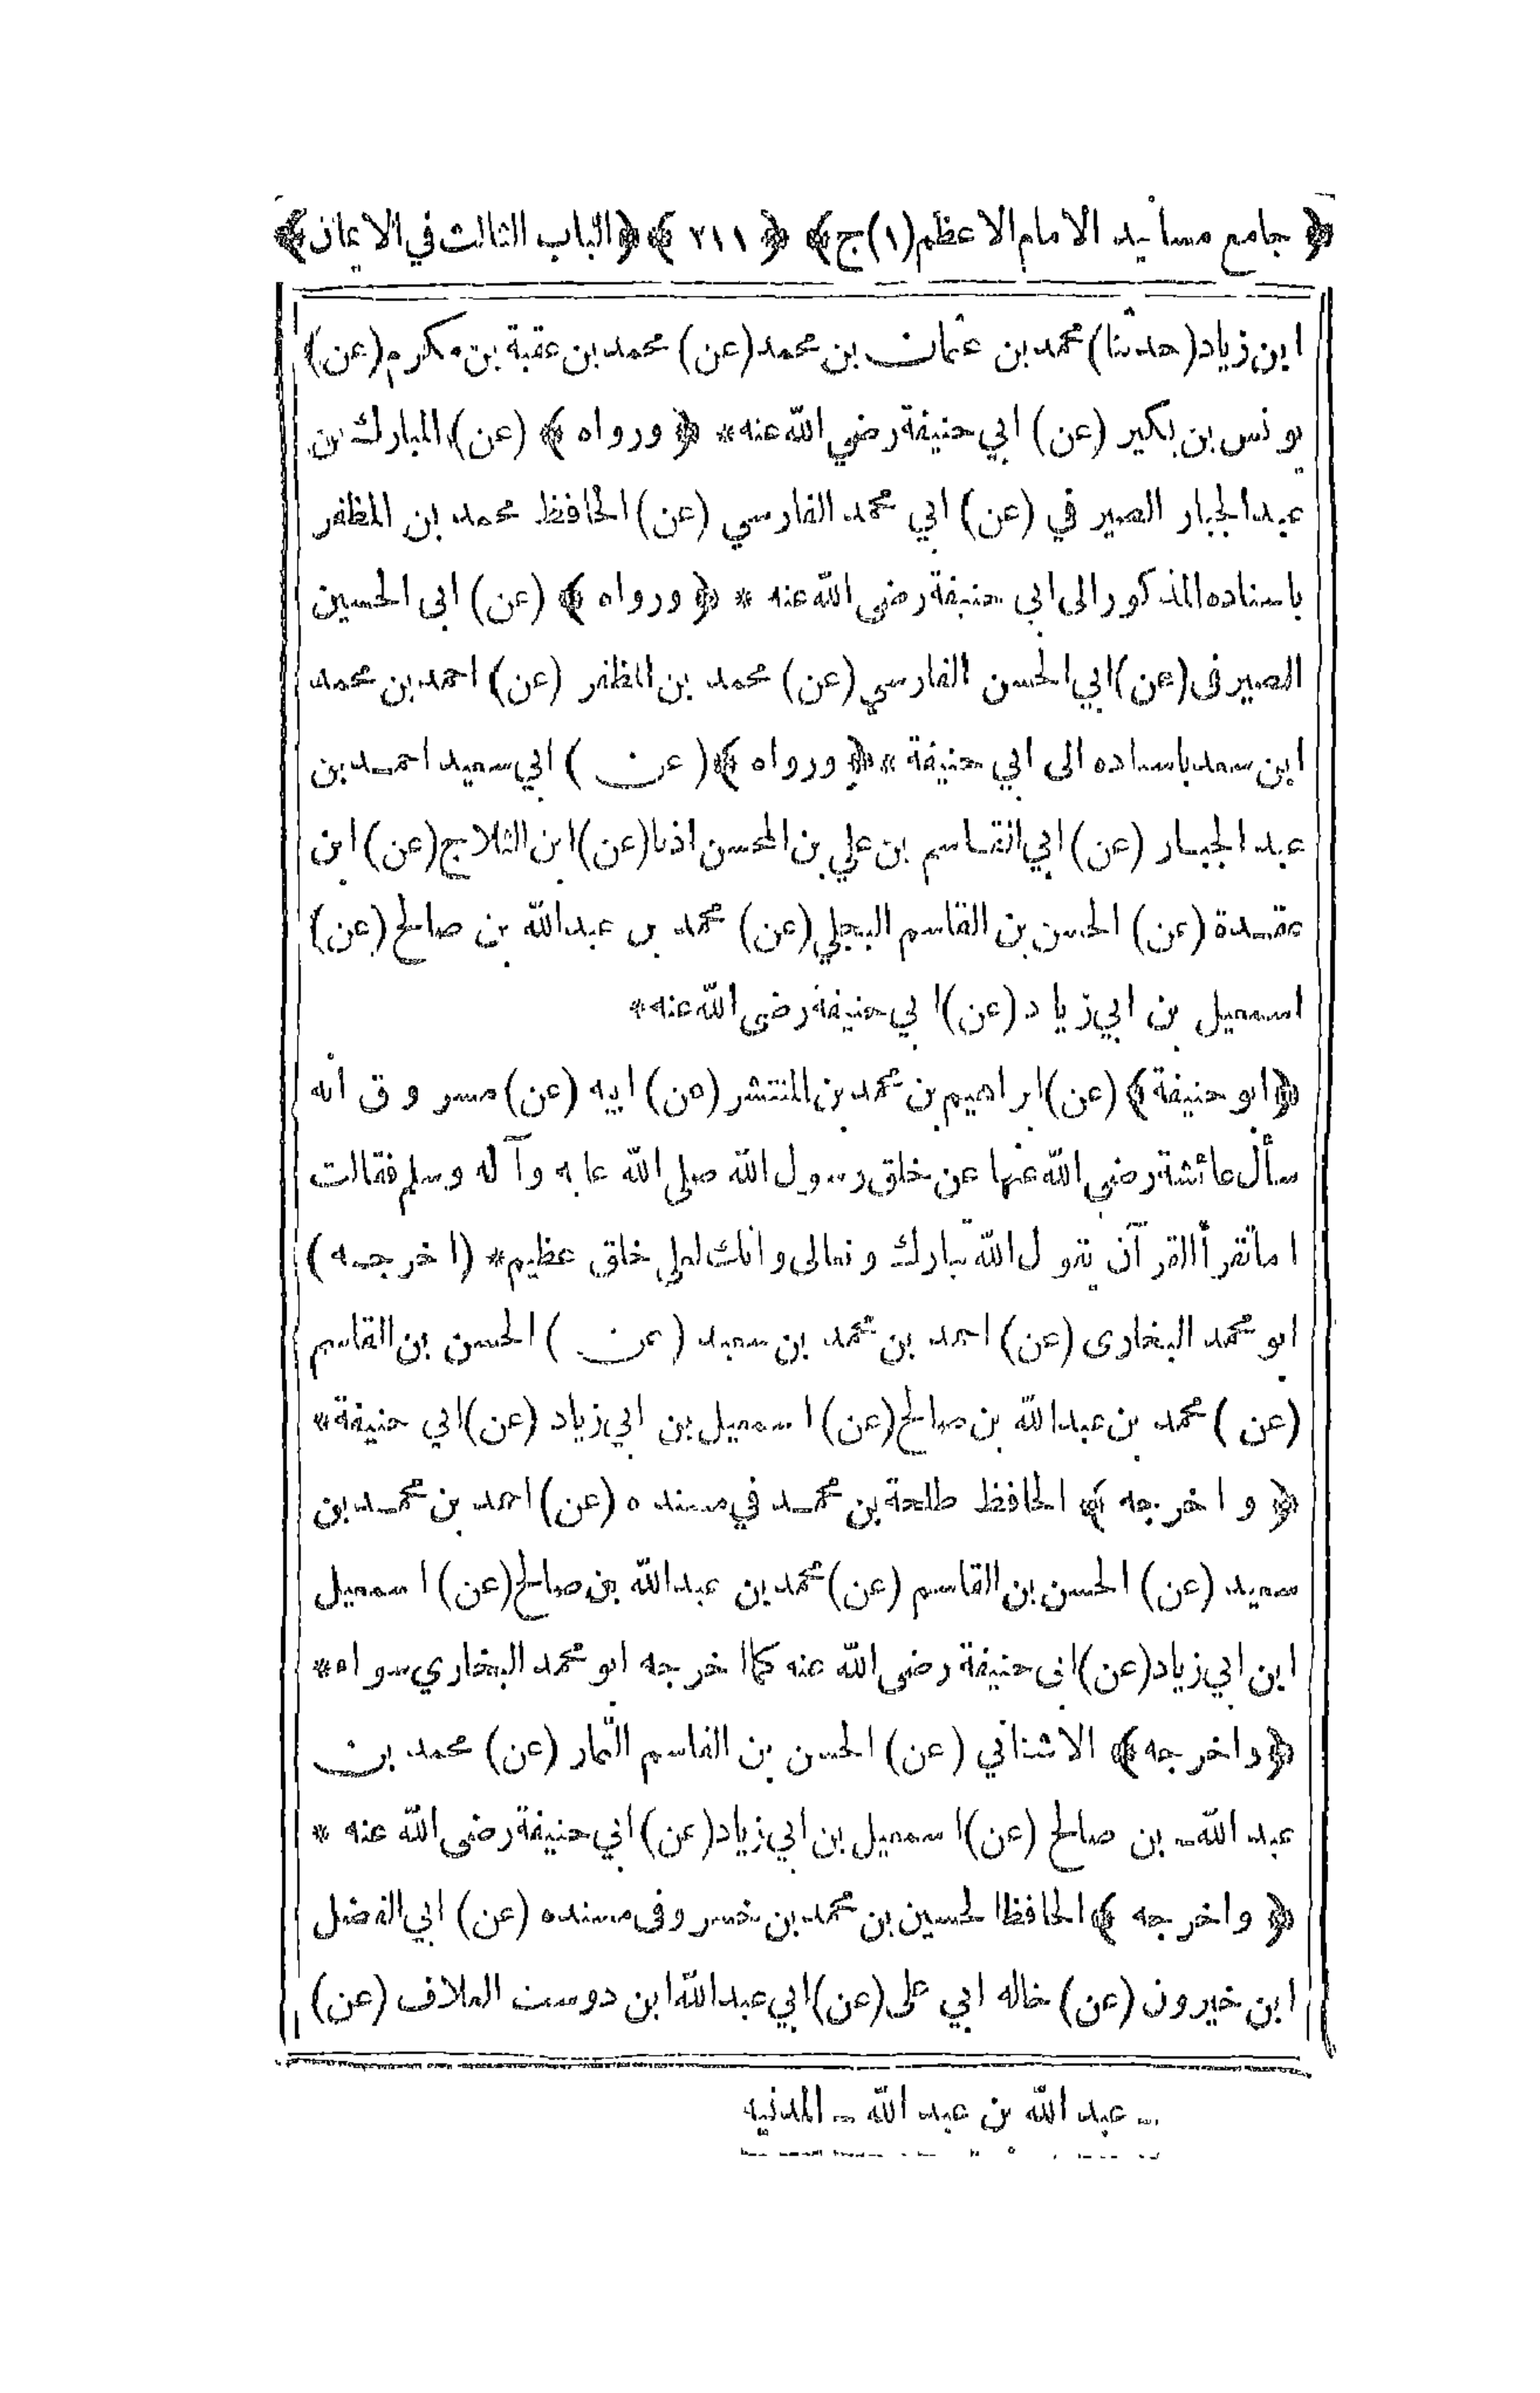 ﴿ جامع مسانيد الامام الاعظم (١) ج ﴾ ﴿ ٢١١ ﴾ ﴿ الباب الثالث في الايمان ﴾
ابن زياد (حدثنا) محمد بن عثمان بن محمد (عن) محمد بن عقبة بن مكرم (عن)
يونس بن بكير (عن) ابي حنيفة رضي الله عنه * ﴿ ورواه ﴾ (عن) المبارك بن
عبد الجبار الصيرفي (عن) ابي محمد الفارسي (عن) الحافظ محمد بن المظفر
باسناده المذكور الى ابي حنيفة رضى الله عنه * ﴿ ورواه ﴾ (عن) ابى الحسين
الصيرفى (عن) ابي الحسن الفارسي (عن) محمد بن المظفر (عن) احمد بن محمد
ابن سعد باسناده الى ابي حنيفة * ﴿ ورواه ﴾ (عن) ابي سعيد احمد بن
عبد الجبار (عن) ابي القاسم بن علي بن المحسن اذنا (عن) ابن الثلاج (عن) ابن
عقدة (عن) الحسن بن القاسم البجلي (عن) محمد بن عبد الله بن صالح (عن)
اسمعيل بن ابي زياد (عن) ابي حنيفة رضى الله عنه *
﴿ ابو حنيفة ﴾ (عن) ابراهيم بن محمد بن المنتشر (عن) ابيه (عن) مسروق انه
سأل عائشة رضي الله عنها عن خلق رسول الله صلى الله عليه وآله وسلم فقالت
اما تقرأ القرآن يقول الله تبارك وتعالى وانك لعلى خلق عظيم * (اخرجه)
ابو محمد البخارى (عن) احمد بن محمد بن سعيد (عن) الحسن بن القاسم
(عن) محمد بن عبد الله بن صالح (عن) اسمعيل بن ابي زياد (عن) ابي حنيفة *
﴿ واخرجه ﴾ الحافظ طلحة بن محمد في مسنده (عن) احمد بن محمد بن
سعيد (عن) الحسن بن القاسم (عن) محمد بن عبد الله بن صالح (عن) اسمعيل
ابن ابي زياد (عن) ابى حنيفة رضى الله عنه كما اخرجه ابو محمد البخاري سواء *
﴿ واخرجه ﴾ الاشناني (عن) الحسن بن القاسم التمار (عن) محمد بن
عبد الله بن صالح (عن) اسمعيل بن ابي زياد (عن) ابي حنيفة رضى الله عنه *
﴿ واخرجه ﴾ الحافظ الحسين بن محمد بن خسرو فى مسنده (عن) ابي الفضل
ابن خيرون (عن) خاله ابي على (عن) ابي عبد الله ابن دوست العلاف (عن)
عبد الله بن عبد الله - المدنيه